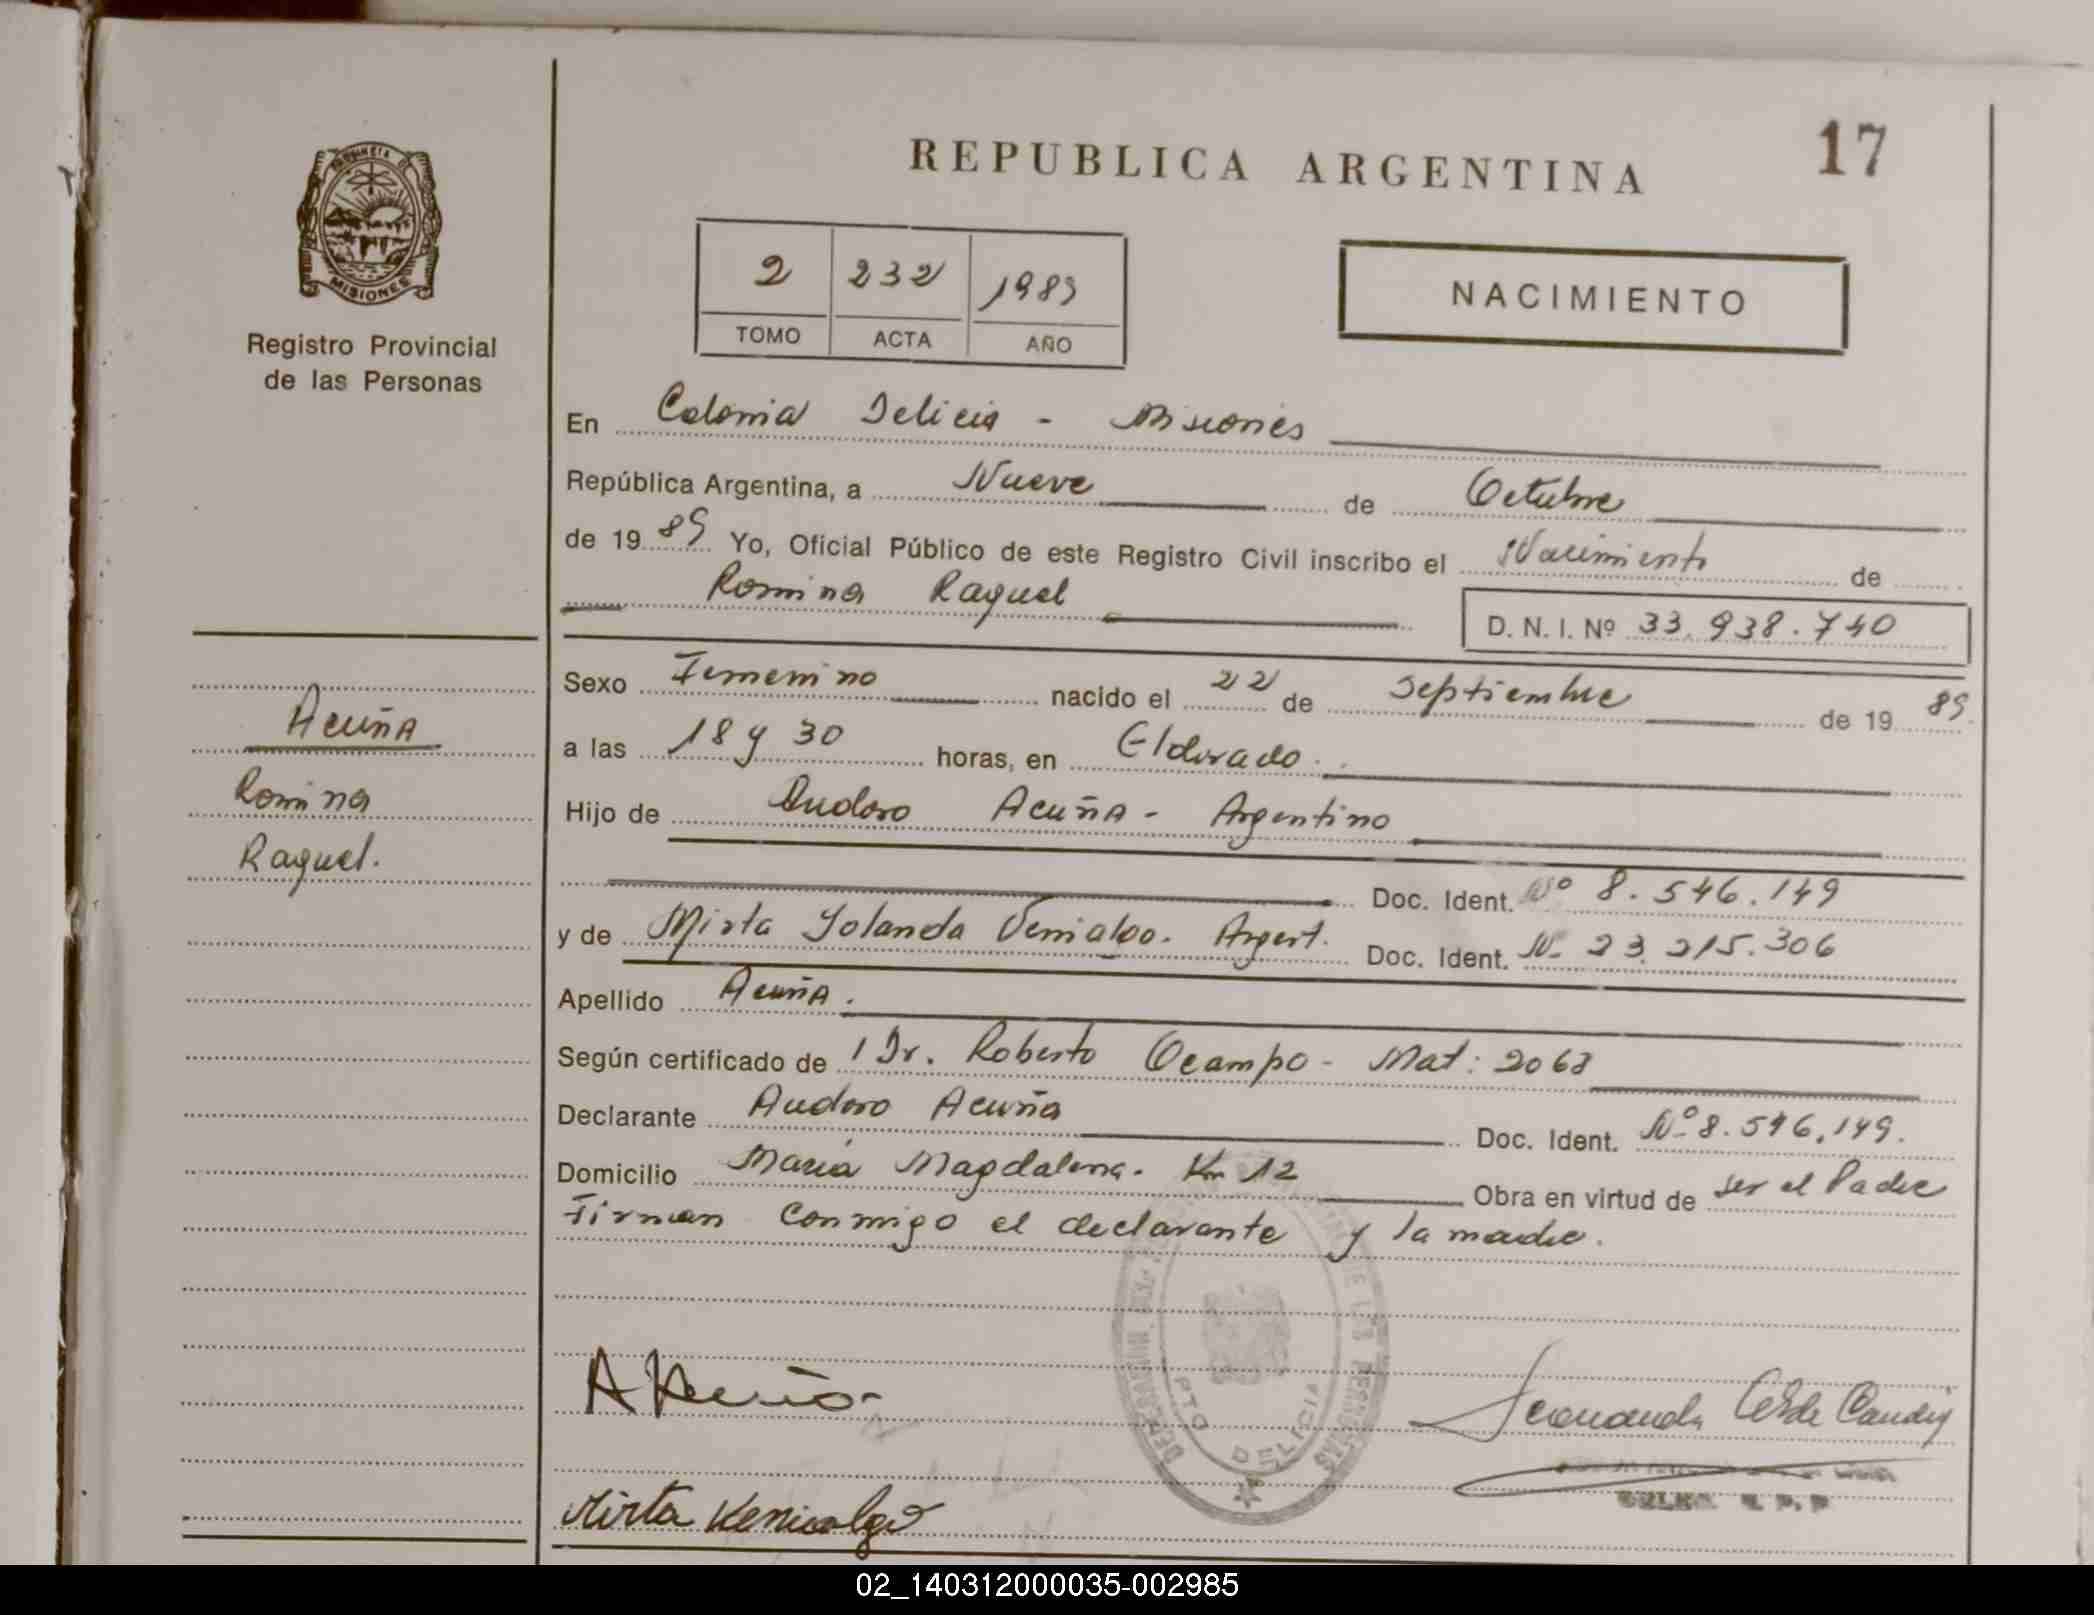 PROVINCIA DE
MISIONES
Registro Provincial
de las Personas
REPUBLICA ARGENTINA
17
2 232 1989
TOMO ACTA AÑO
NACIMIENTO
En Colonia Delicia - Misiones
República Argentina, a Nueve de Octubre
de 19 89 Yo, Oficial Público de este Registro Civil inscribo el Nacimiento de
Romina Raquel
D. N. I. Nº 33.938.740
Sexo Femenino nacido el 22 de Septiembre de 19 89
a las 18 y 30 horas, en Eldorado.
Hijo de Audoro Acuña - Argentino
Doc. Ident. Nº 8.546.149
y de Mirta Yolanda Venialgo. Argent. Doc. Ident. Nº 23.215.306
Apellido Acuña.
Según certificado de 1 Dr. Roberto Ocampo - Mat: 2063
Declarante Audoro Acuña Doc. Ident. Nº 8.546.149.
Domicilio María Magdalena. Km 12 Obra en virtud de ser el Padre
Firman conmigo el declarante y la madre.
Acuña
Romina
Raquel.
A Acuña
DE LAS PERSONAS
PTO DELICIA
Mirta Venialgo
02_140312000035-002985